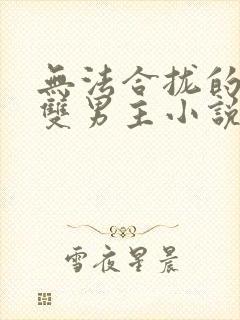 無法合拢的
雙男主小説
雪夜星晨